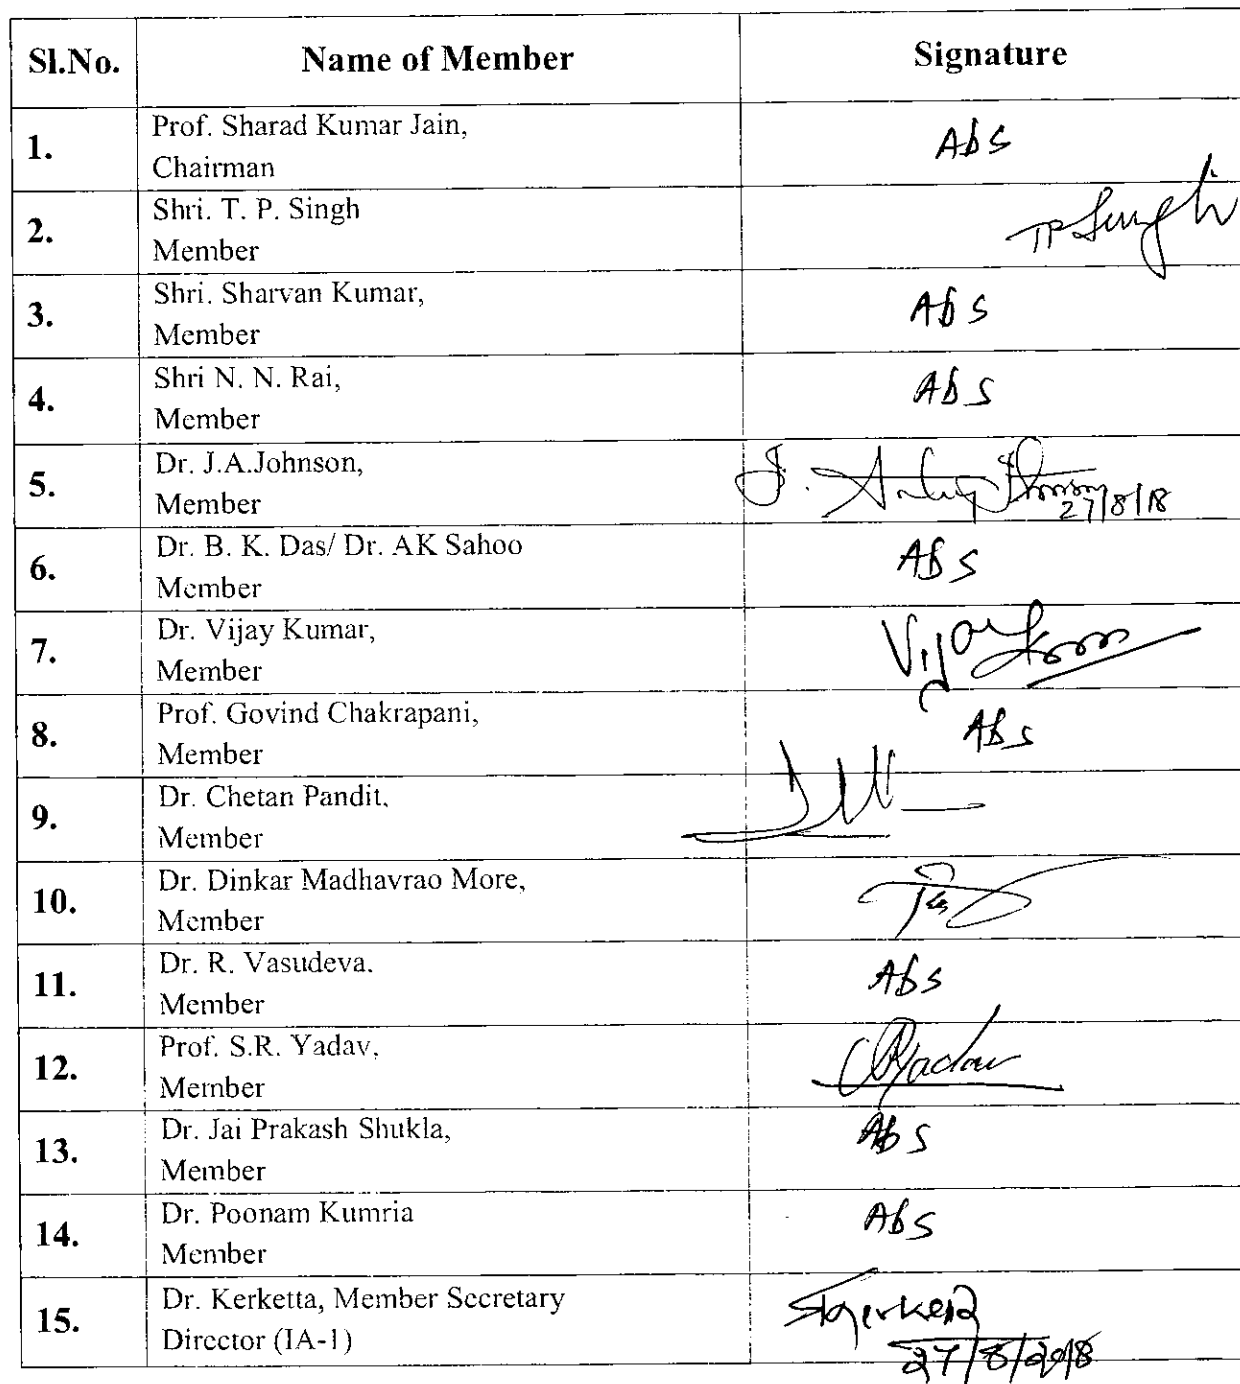 Sl.No. Name of Member Signature
1. Prof. Sharad Kumar Jain, Abs
Chairman
2. Shri. T. P. Singh TP Singh
Member
3. Shri. Sharvan Kumar, Abs
Member
4. Shri N. N. Rai, Abs
Member
5. Dr. J.A.Johnson, J.
Member 27/8/18
6. Dr. B. K. Das/ Dr. AK Sahoo Abs
Member
7. Dr. Vijay Kumar, Vijay Kumar
Member
8. Prof. Govind Chakrapani, Abs
Member
9. Dr. Chetan Pandit,
Member
10. Dr. Dinkar Madhavrao More,
Member
11. Dr. R. Vasudeva. Abs
Member
12. Prof. S.R. Yadav, Yadav
Member
13. Dr. Jai Prakash Shukla, Abs
Member
14. Dr. Poonam Kumria Abs
Member
15. Dr. Kerketta, Member Secretary
Director (IA-1) 27/8/2018